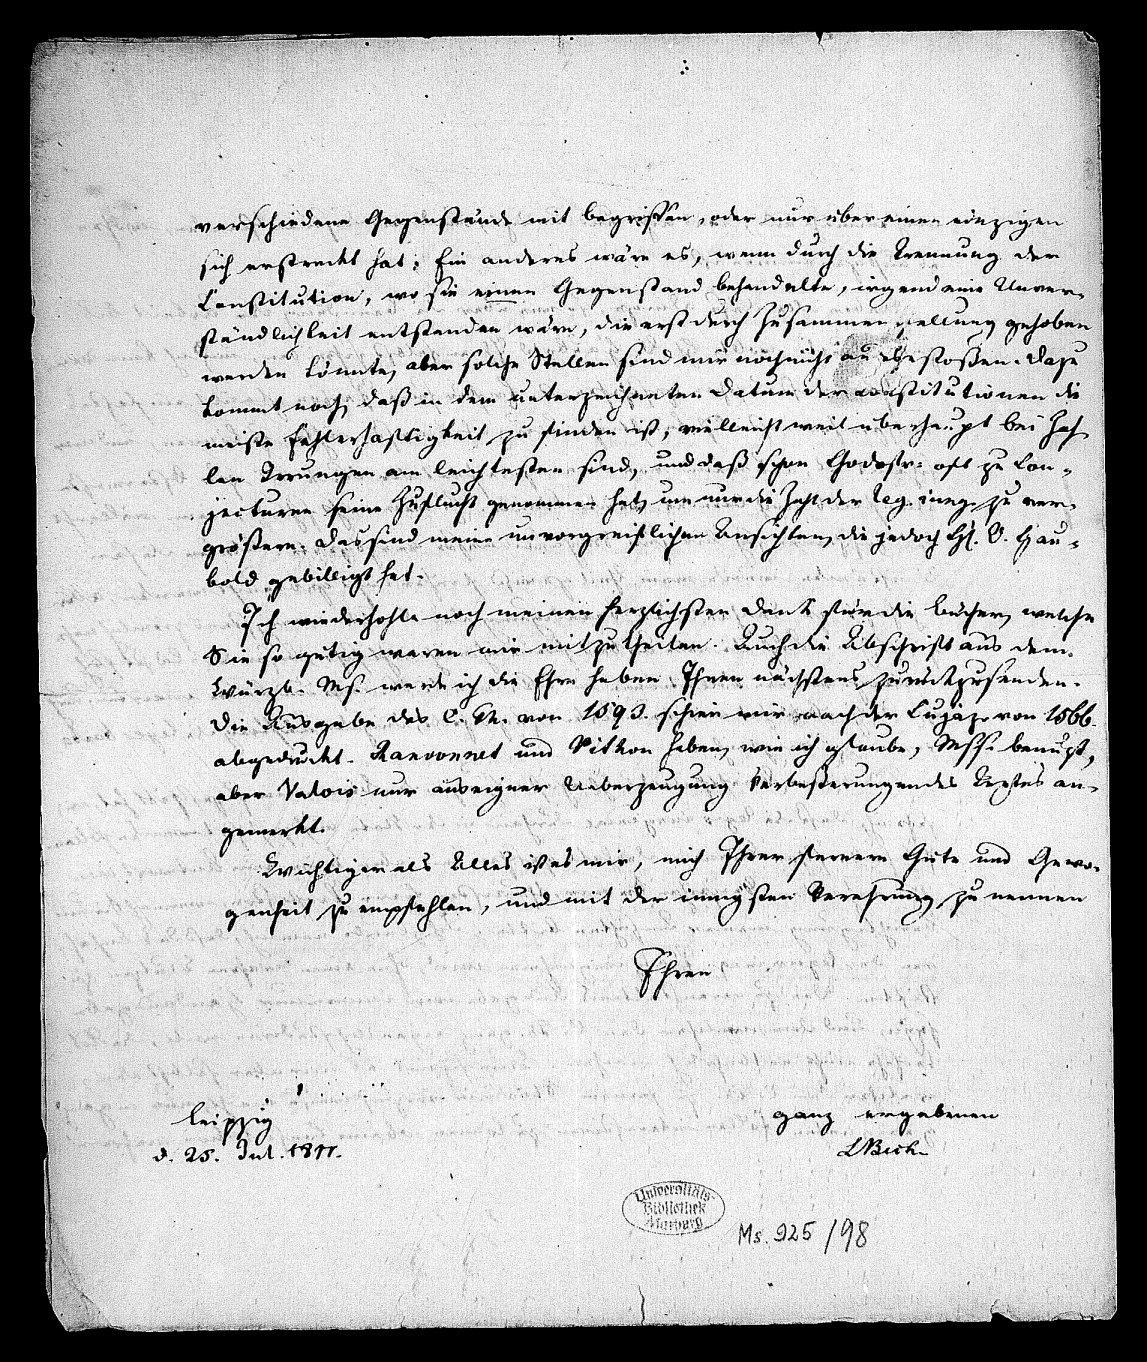 verschiedene Gegenstände mit begriffen, oder nur über einen einzigen
sich erstreckt hat; Ein anderes wäre es, wenn durch die Trennung der
Constitution, wo sie einen Gegenstand behandelte, irgend eine Unver-
ständlichkeit entstanden wäre, die erst durch Zusammenstellung gehoben
werden könnte, aber solche Stellen sind mir noch nicht aufgestoßen. Dazu
kommt noch, daß in dem unterzeichneten Datum der Constitutionen die
meiste Fehlerhaftigkeit zu finden ist, vielleicht weil überhaupt bei Zah
len Irrungen am leichtesten sind, und daß schon Godofr: oft zu Con-
jecturen seine Zuflucht genommen hat, um nur die Zahl der leg. iung. zu ver-
größern. Das sind meine unvorgreiflichen Ansichten, die jedoch H. D. Hau-
bold gebilligt hat.
Ich wiederhohle noch meinen herzlichsten Dank für die Bücher, welche
Sie so gütig waren mir mitzutheilen. Auch die Abschrift aus dem
Würzb. Ms. werde ich die Ehre haben Ihnen nächstens zurückzusenden.
Die Ausgabe des C. Th. von 1593. schien mir nach der Cujaz. von 1566.
abgedruckt. Ranconnet und Pithou haben, wie ich glaube, Mss. benutzt,
aber Valois nur aus eigner Ueberzeugung Verbeßerungen des Textes an-
gemerkt.
Wichtiger als Alles ist es mir, mich Ihrer fernern Güte und Gewo-
genheit zu empfehlen, und mit der innigsten Verehrung zu nennen
Ihren
Leipzig
ganz ergebenen
d. 25. Jul. 1811.
Universitäts-
Bibliothek
Marburg
Ms. 925/98